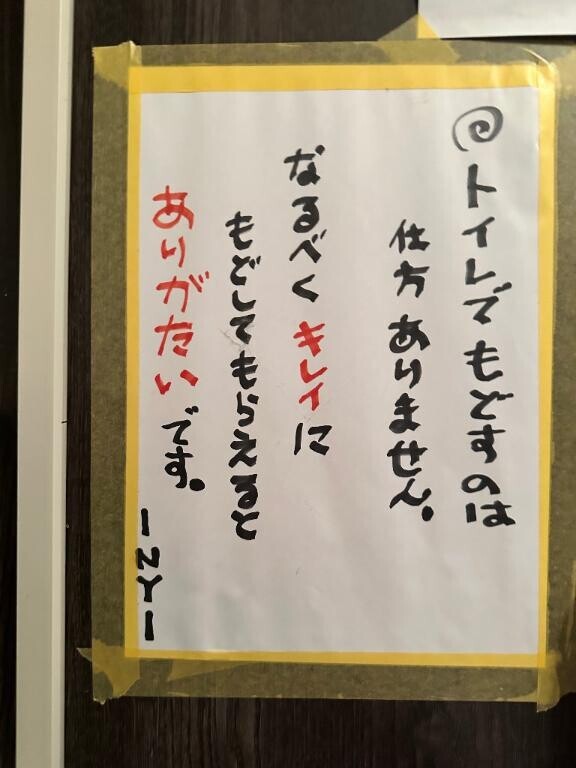 @トイレでもどすのは
仕方ありません。
なるべくキレイに
もどしてもらえると
ありがたいです。